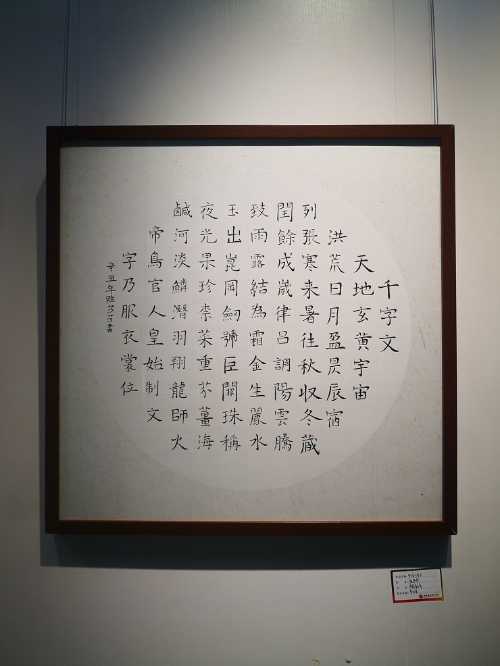 千字文
天地玄黄宇宙
洪荒日月盈昃辰宿
列張寒来暑往秋収冬蔵
閏餘成歲律呂調陽雲騰
致雨露結為霜金生麗水
玉出崑岡劒號巨闕珠稱
夜光果珍柰菜重芥薑海
鹹河淡鱗潛羽翔龍師火
帝鳥官人皇始制文
字乃服衣裳位
辛丑年